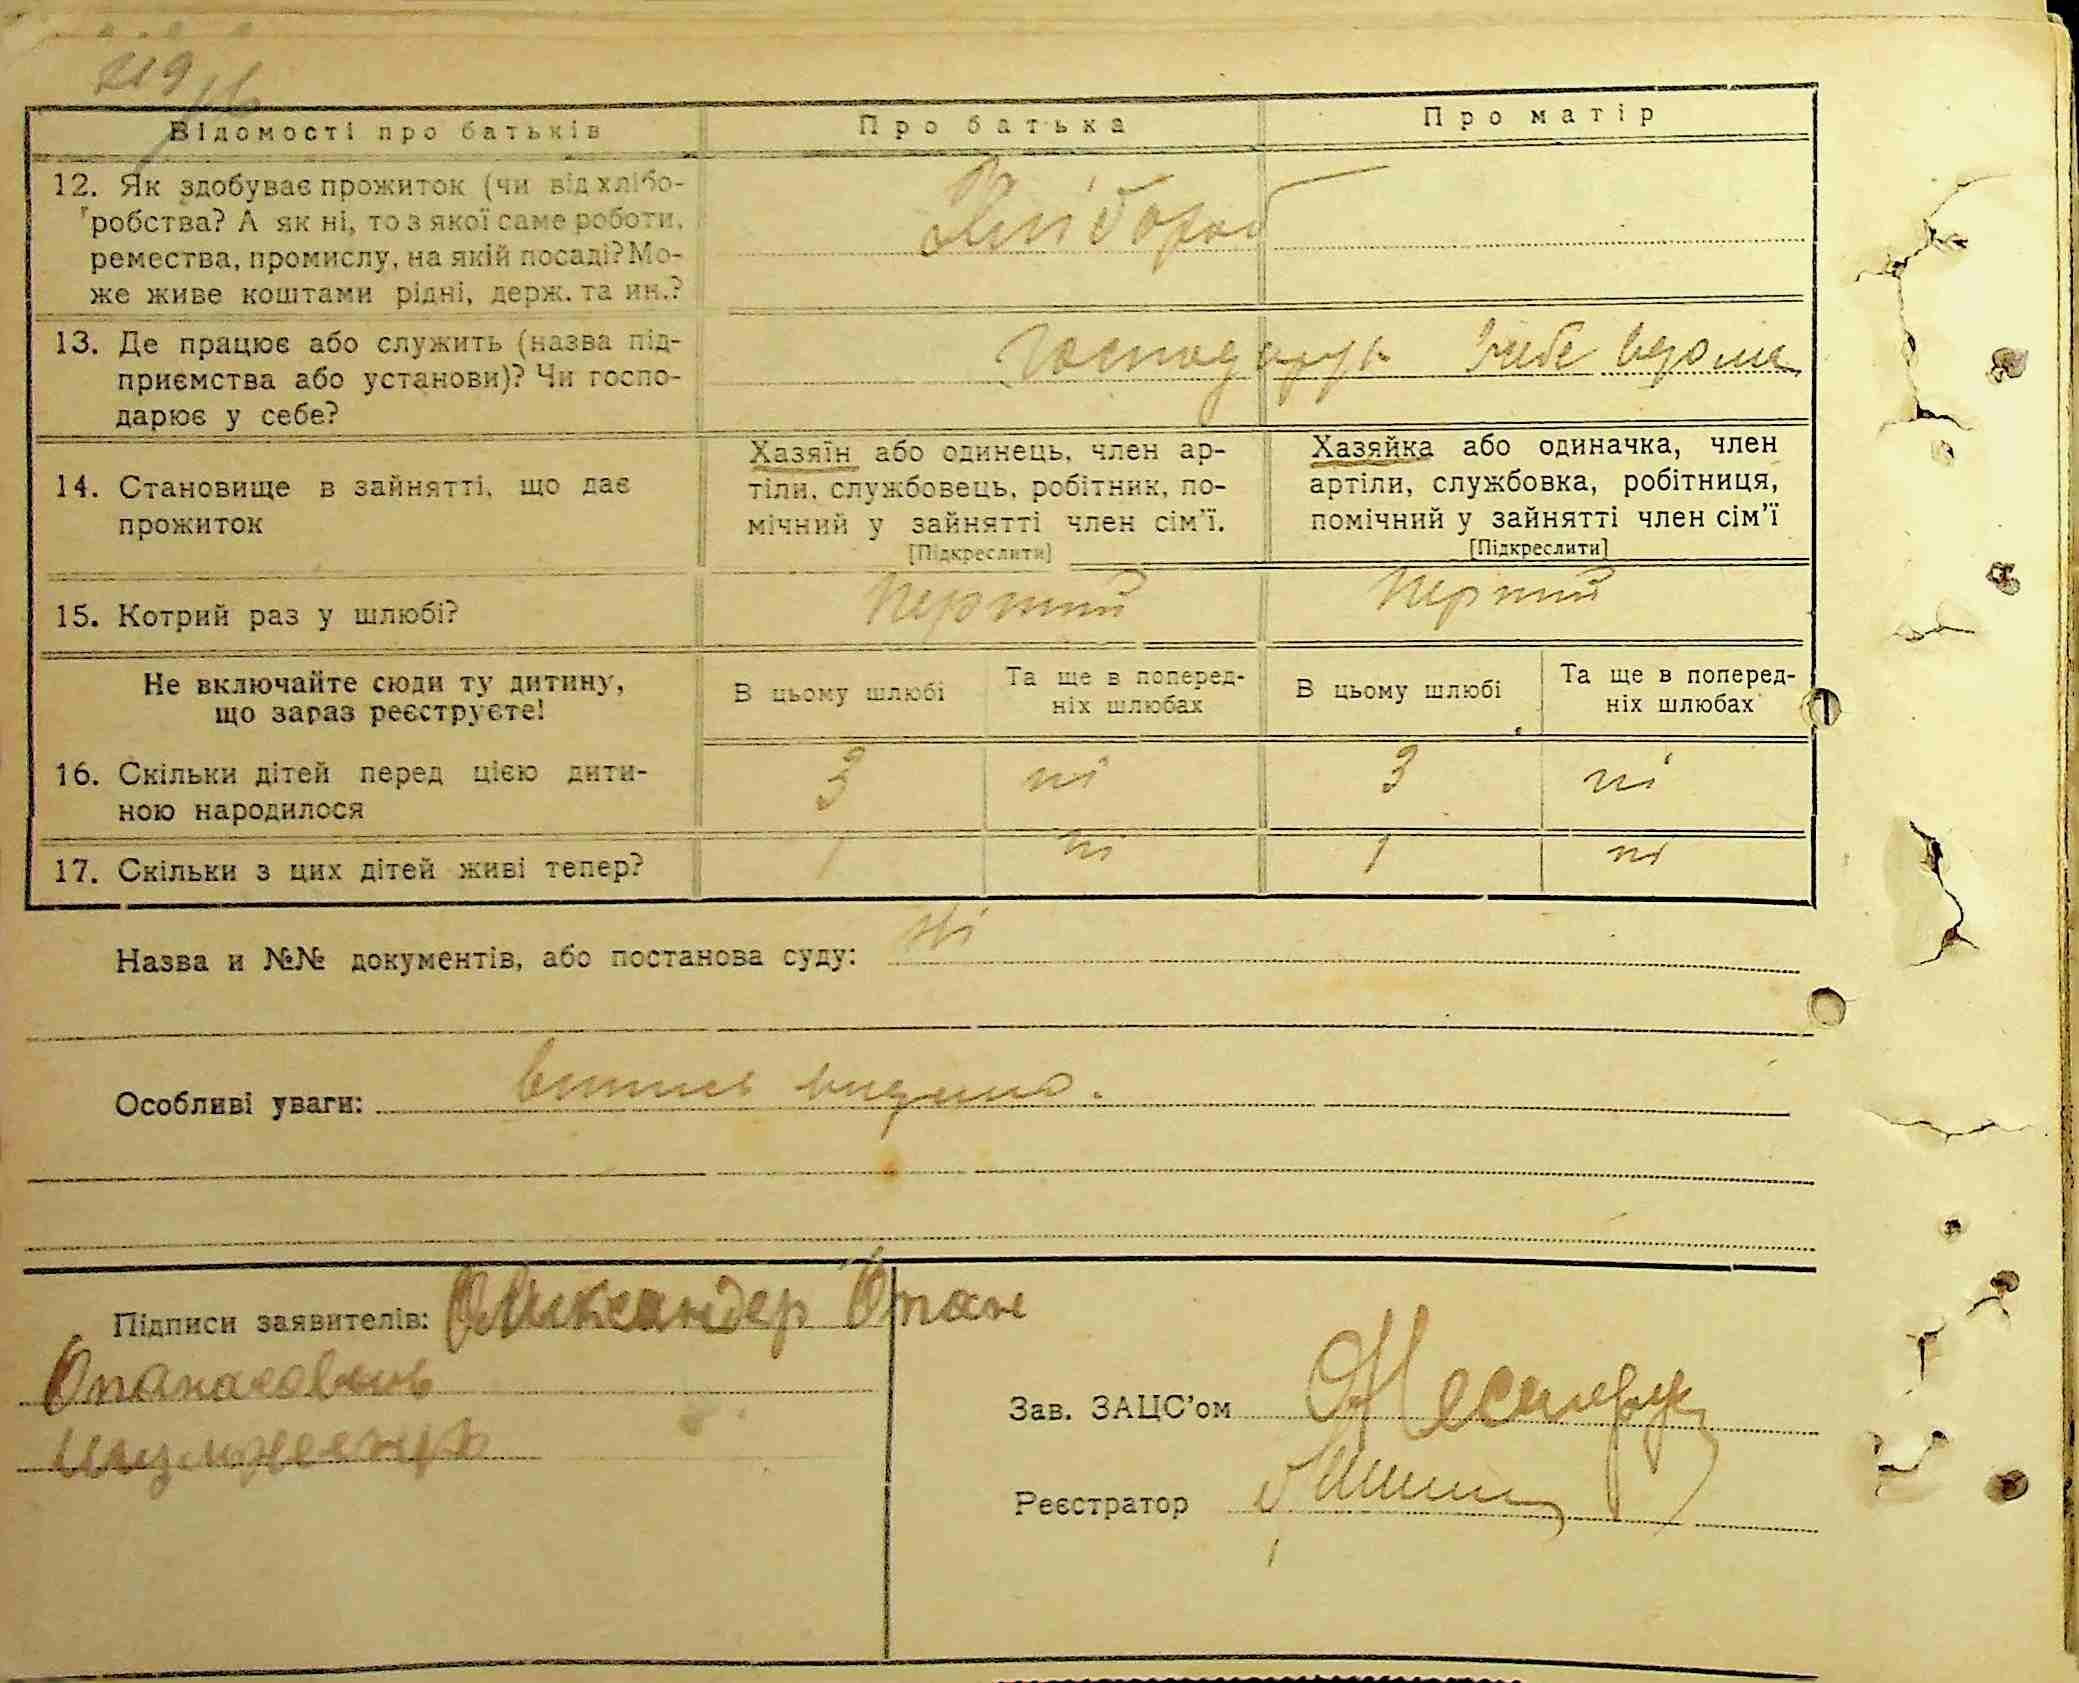 Відомості про батьків
Про батька
Про матір
12. Як здобуває прожиток (чи від хлібо-
робства? А як ні, то з якої саме роботи,
ремества, промислу, на якій посаді? Мо-
же живе коштами рідні, держ. та ин.?
Хлібороб
13. Де працює або служить (назва під-
приємства або установи)? Чи госпо-
дарює у себе?
14. Становище в зайнятті, що дає
прожиток
Хазяїн або одинець, член ар-
тіли, службовець, робітник, по-
мічний у зайнятті член сім'ї.
[Підкреслити]
Хазяйка або одиначка, член
артіли, службовка, робітниця,
помічний у зайнятті член сім'ї
[Підкреслити]
15. Котрий раз у шлюбі?
перший
перший
Не включайте сюди ту дитину,
що зараз реєструєте!
В цьому шлюбі
Та ще в поперед-
ніх шлюбах
В цьому шлюбі
Та ще в поперед-
ніх шлюбах
16. Скільки дітей перед цією дити-
ною народилося
3 ні 3 ні
17. Скільки з цих дітей живі тепер?
1 ні 1 ні
Назва и №№ документів, або постанова суду: ні
Особливі уваги:
Підписи заявителів:
Зав. ЗАЦС'ом
Реєстратор